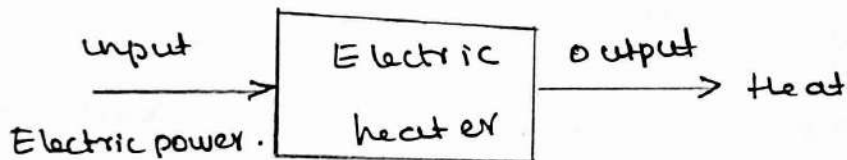 input
Electric power.
Electric
heater
output
Heat